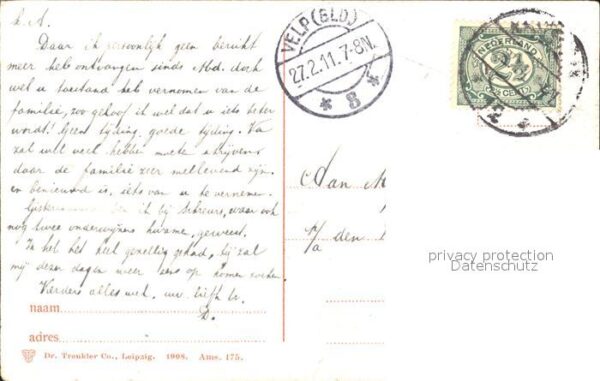 L. A.
Daar ik persoonlijk geen bericht
meer heb ontvangen sinds Abd. doch
wel u toestand heb vernomen van de
familie, zoo geloof ik wel dat u iets beter
wordt! Geen tijding goede tijding. Va
zal wel veel hebben moeten schrijven
daar de familie zeer mellevend zijn.
en benieuwd is, iets van u te vernemen.
ik bij Scheurs, waar ook
nog twee onderwijzers kwame, geweest.
Ik heb het heel gezellig gehad, hij zal
mij dezer dagen weer eens op komen zoeken.
Verders alles wel. uw liefh.
D.
naam
adres
Dr. Trenkler Co., Leipzig. 1908. Ams. 175.
VELP (GLD)
27.2.11.7-8N.
* 8 *
NEDERLAND
2½
2½ CENT
Aan M
p/a den
privacy protection
Datenschutz